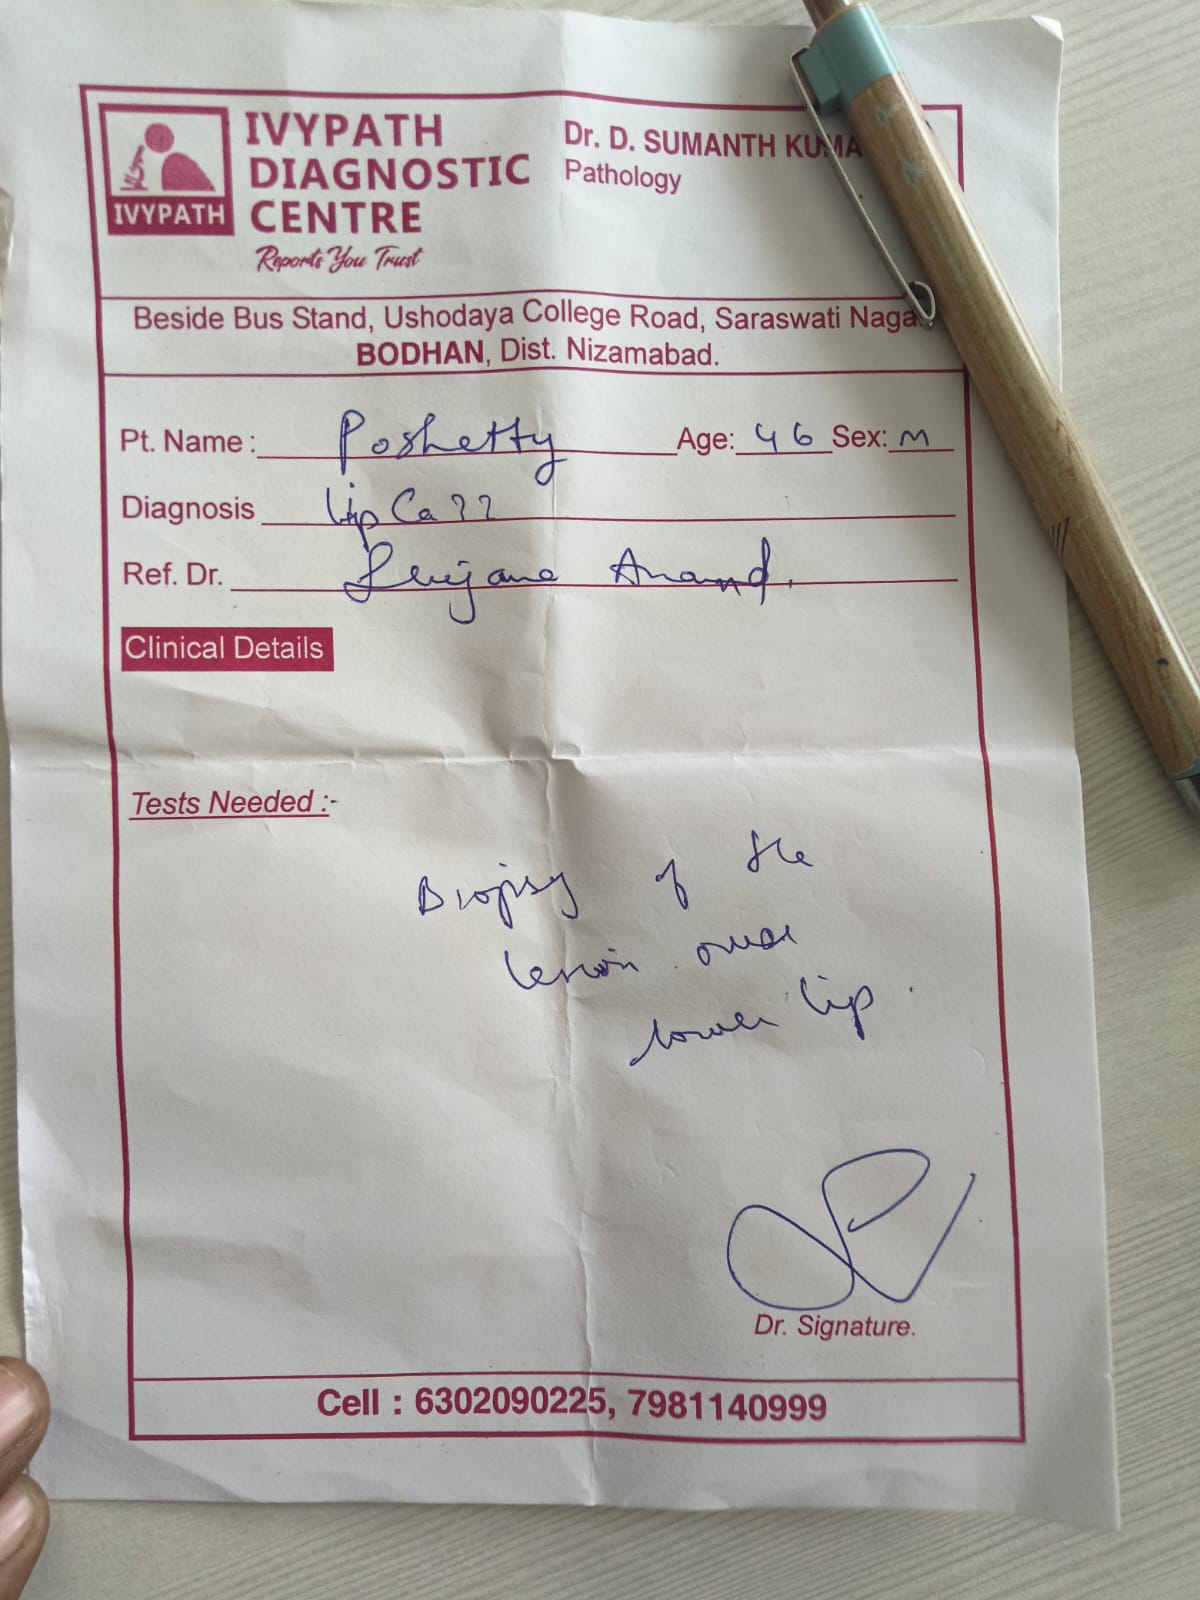 IVYPATH
IVYPATH
DIAGNOSTIC
CENTRE
Reports You Trust
Dr. D. SUMANTH KUMA
Pathology
Beside Bus Stand, Ushodaya College Road, Saraswati Naga
BODHAN, Dist. Nizamabad.
Pt. Name : Poshetty Age: 46 Sex: M
Diagnosis Lip Ca ??
Ref. Dr. Srujana Anand.
Clinical Details
Tests Needed :-
Biopsy of the
lesion over
lower lip.
Dr. Signature.
Cell : 6302090225, 7981140999